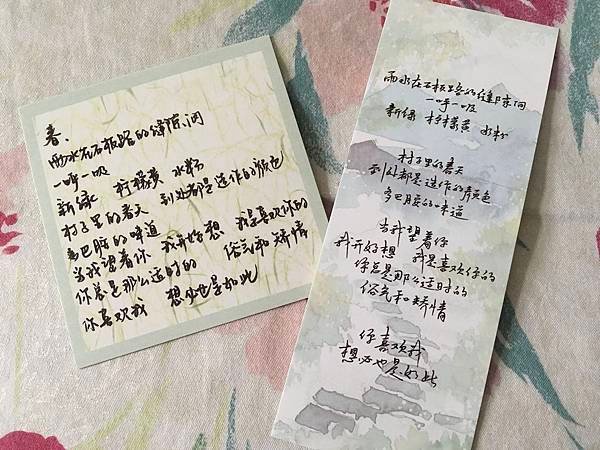 春.
雨水在石板路的缝隙间
一呼一吸
新绿 柠檬黄 水粉
村子里的春天 到处都是造作的颜色
多巴胺的味道
当我望着你 我开始想 我是喜欢你的
你总是那么适时的 俗气和矫情
你喜欢我 想必也是如此
雨水在石板路的缝隙间
一呼一吸
新绿 柠檬黄 水粉
村子里的春天
到处都是造作的颜色
多巴胺的味道
当我望着你
我开始想 我是喜欢你的
你总是那么适时的
俗气和矫情
你喜欢我
想必也是如此